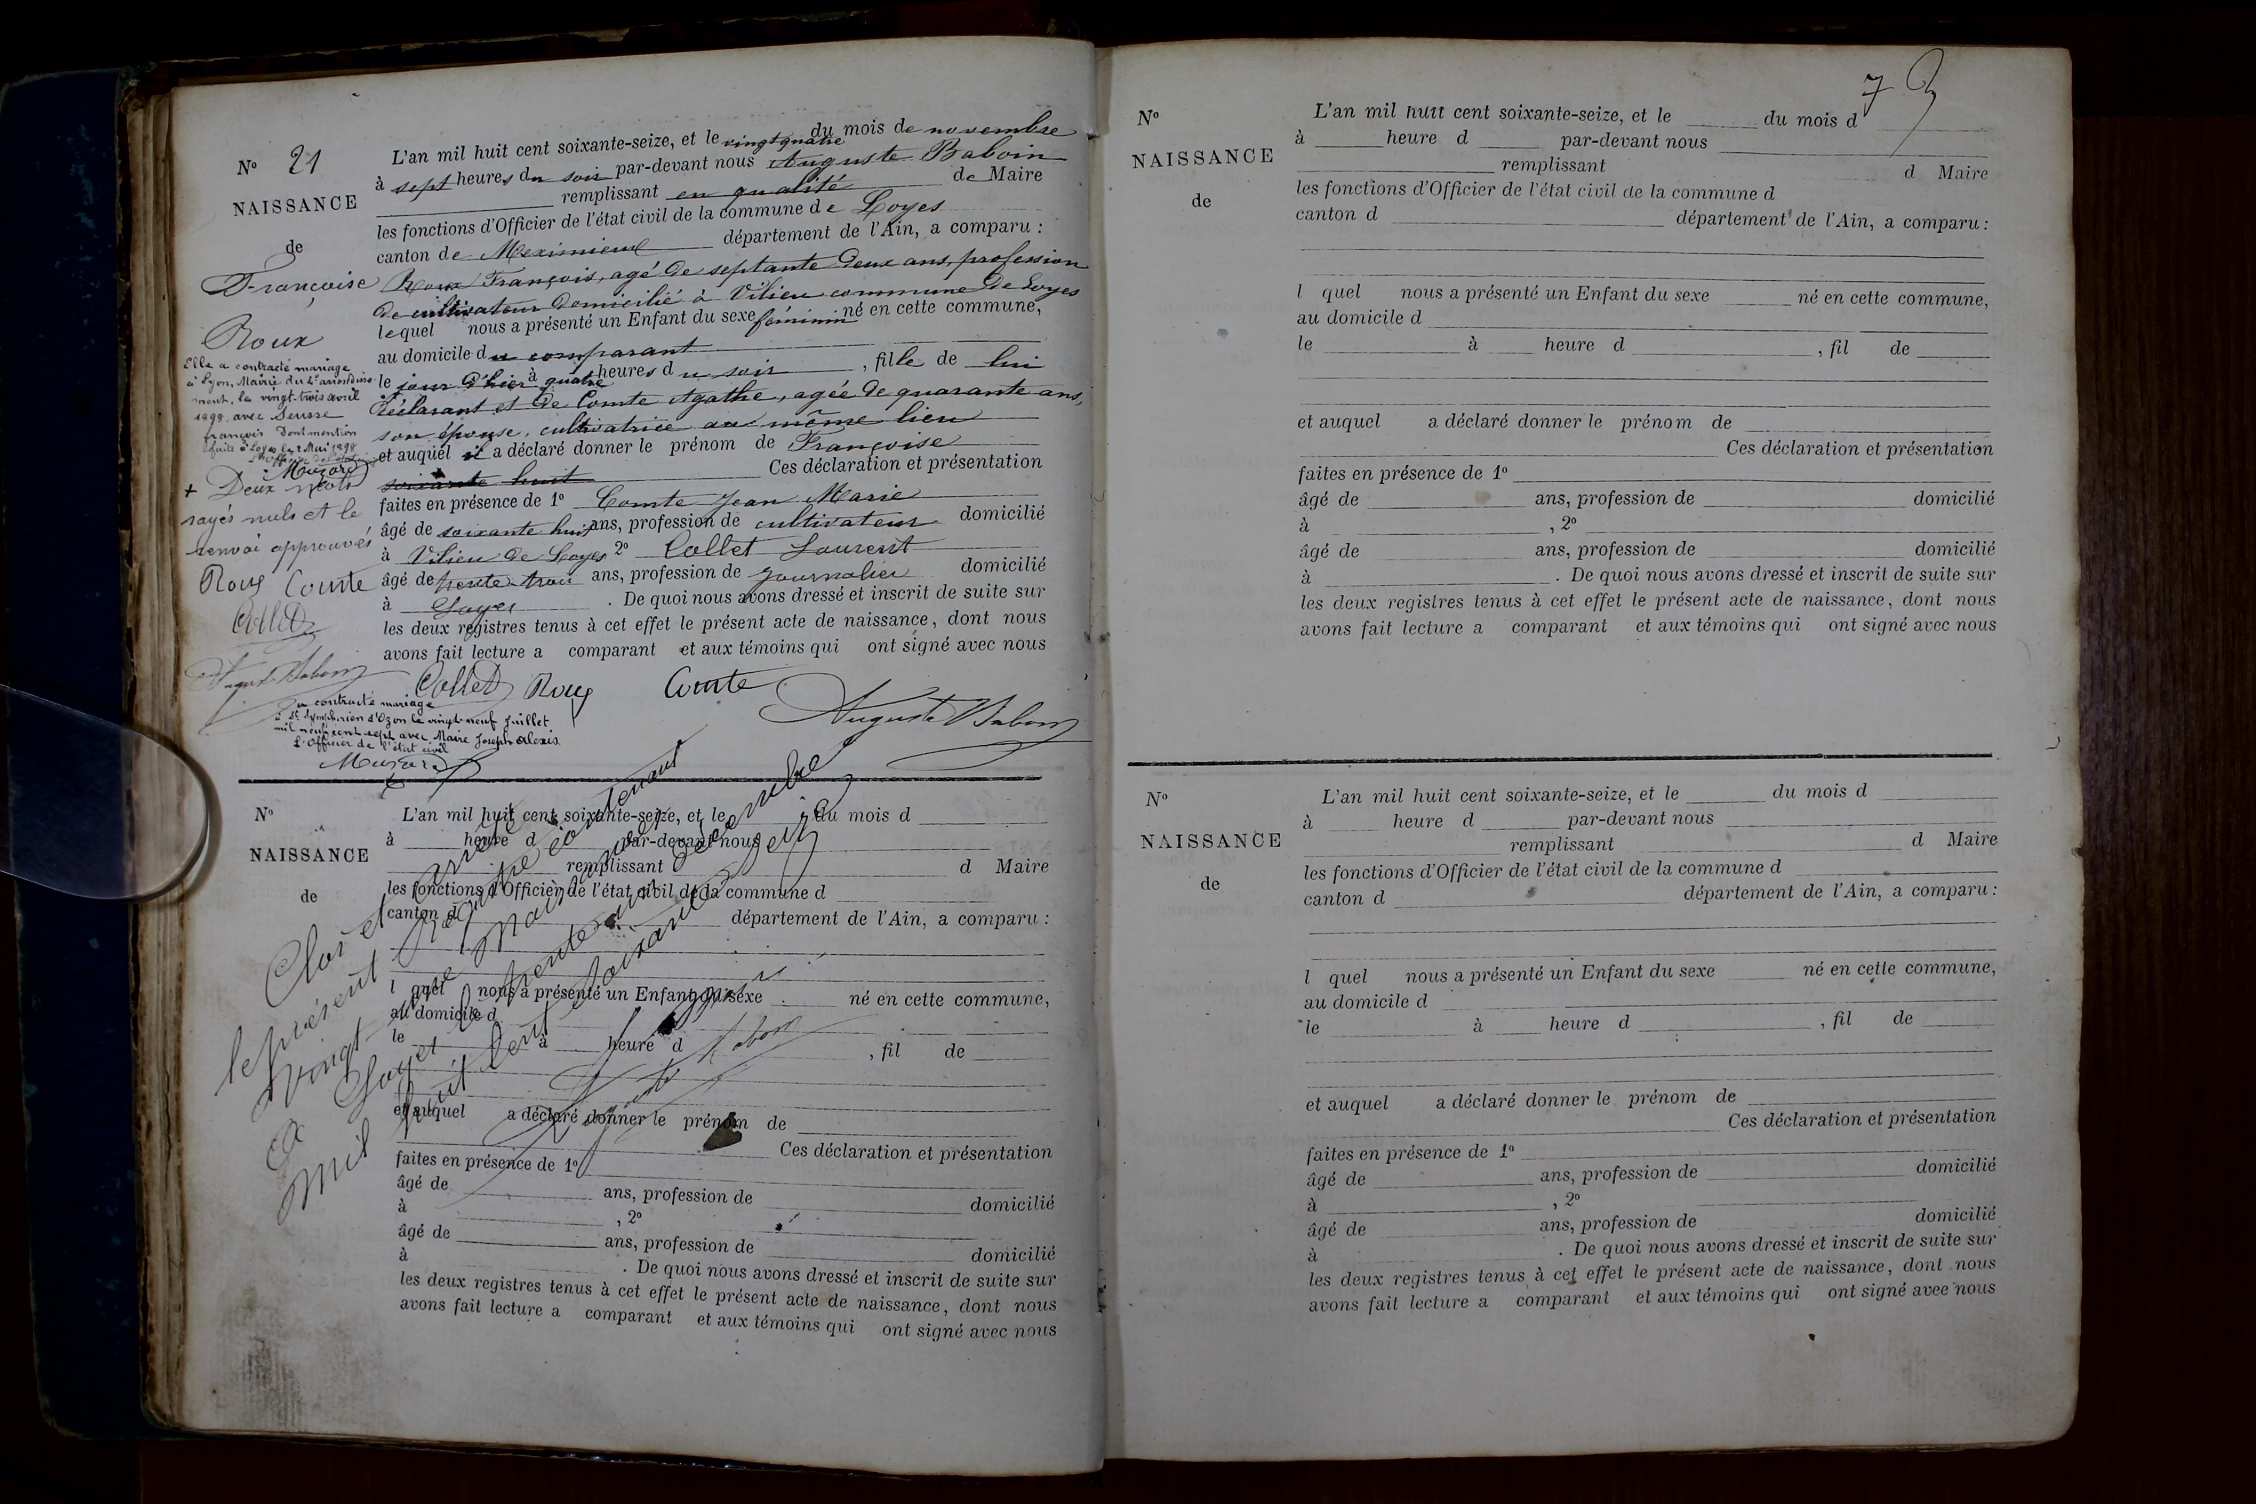 Nº 21
NAISSANCE
de
Françoise
Roux
Elle a contracté mariage
à Lyon, Mairie du 4e arrondisse-
ment, le vingt-trois avril
1898 avec
françois Dont mention
faite à Loyes le 2 Mai 1898
Muzard
+ Deux mots
rayés nuls et le
renvoi approuvés
Roux Comte
Collet
Auguste Baboin
L'an mil huit cent soixante-seize, et le vingt quatre du mois de novembre
à sept heures du soir par-devant nous Auguste Baboin
remplissant en qualité de Maire
les fonctions d'Officier de l'état civil de la commune de Loyes
canton de Meximieux département de l'Ain, a comparu :
Roux François, agé de septante deux ans, profession
de cultivateur domicilié à Vilieu commune de Loyes
lequel nous a présenté un Enfant du sexe féminin né en cette commune,
au domicile du comparant
le jour d'hier à quatre heures du soir , fille de lui
déclarant et de Comte Agathe, agée de quarante ans,
son épouse, cultivatrice au même lieu
et auquel il a déclaré donner le prénom de Françoise
soixante huit Ces déclaration et présentation
faites en présence de 1º Comte Jean Marie
âgé de soixante huit ans, profession de cultivateur domicilié
à Vilieu de Loyes 2º Collet Laurent
âgé de trente trois ans, profession de journalier domicilié
à Loyes . De quoi nous avons dressé et inscrit de suite sur
les deux registres tenus à cet effet le présent acte de naissance, dont nous
avons fait lecture a comparant et aux témoins qui ont signé avec nous
Collet Roux Comte
Auguste Baboin
a contracté mariage
à St Symphorien d'Ozon le vingt-neuf Juillet
mil neuf cent sept avec Maire Joseph Alexis
L'Officier de l'état civil
Muzard
Nº
NAISSANCE
de
L'an mil huit cent soixante-seize, et le du mois d
à heure d par-devant nous
remplissant d Maire
les fonctions d'Officier de l'état civil de la commune d
canton d département de l'Ain, a comparu :
l quel nous a présenté un Enfant du sexe né en cette commune,
au domicile d
le à heure d , fil de
et auquel a déclaré donner le prénom de
Ces déclaration et présentation
faites en présence de 1º
âgé de ans, profession de domicilié
à , 2º
âgé de ans, profession de domicilié
à . De quoi nous avons dressé et inscrit de suite sur
les deux registres tenus à cet effet le présent acte de naissance, dont nous
avons fait lecture a comparant et aux témoins qui ont signé avec nous
Clos et arrêté
le présent Registre contenant
vingt une
à Loyes le trente un décembre
mil huit cent soixante seize
73
Nº
NAISSANCE
de
L'an mil huit cent soixante-seize, et le du mois d
à heure d par-devant nous
remplissant d Maire
les fonctions d'Officier de l'état civil de la commune d
canton d département de l'Ain, a comparu :
l quel nous a présenté un Enfant du sexe né en cette commune,
au domicile d
le à heure d , fil de
et auquel a déclaré donner le prénom de
Ces déclaration et présentation
faites en présence de 1º
âgé de ans, profession de domicilié
à , 2º
âgé de ans, profession de domicilié
à . De quoi nous avons dressé et inscrit de suite sur
les deux registres tenus à cet effet le présent acte de naissance, dont nous
avons fait lecture a comparant et aux témoins qui ont signé avec nous
Nº
NAISSANCE
de
L'an mil huit cent soixante-seize, et le du mois d
à heure d par-devant nous
remplissant d Maire
les fonctions d'Officier de l'état civil de la commune d
canton d département de l'Ain, a comparu :
l quel nous a présenté un Enfant du sexe né en cette commune,
au domicile d
le à heure d , fil de
et auquel a déclaré donner le prénom de
Ces déclaration et présentation
faites en présence de 1º
âgé de ans, profession de domicilié
à , 2º
âgé de ans, profession de domicilié
à . De quoi nous avons dressé et inscrit de suite sur
les deux registres tenus à cet effet le présent acte de naissance, dont nous
avons fait lecture a comparant et aux témoins qui ont signé avec nous